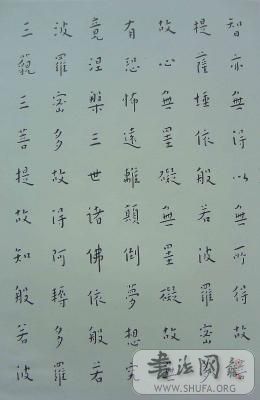 智亦無得以無所得故菩
提薩埵依般若波羅密多
故心無罣礙無罣礙故
有恐怖遠離顛倒夢想究
竟涅槃三世諸佛依般若
波羅密多故得阿耨多羅
三藐三菩提故知般若波
書法网
WWW.SHUFA.ORG